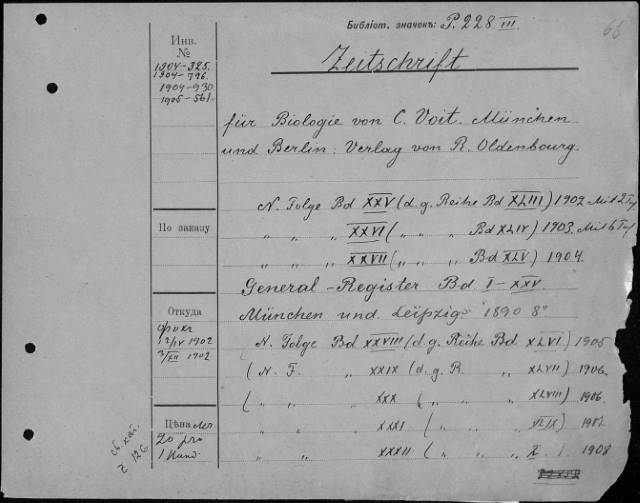 Библіот. значекъ: P. 228 III
66
Инв.
№
1904-325.
1904-796.
1904-930
1905-561.
Zeitschrift
für Biologie von C. Voit. München
und Berlin: Verlag von R. Oldenbourg.
N. Folge Bd XXV (d.g. Reihe Bd XLIII) 1902. Mit 2 Taf
По заказу
„ „ „ XXVI („ „ „ Bd XLIV) 1903. Mit 6 Taf
„ „ „ XXVII („ „ „ Bd XLV) 1904.
General-Register Bd I-XXV
Откуда
München und Leipzig 1890 8°
1902
1902
N. Folge Bd XXVIII (d.g. Reihe Bd XLVI) 1905
(N. F. „ XXIX (d.g. R. „ XLVII) 1906.
( „ „ „ XXX ( „ „ XLVIII) 1906.
Цѣна
20 pro
1 Band.
„ „ XXXI ( „ „ XLIX) 1907.
„ „ „ XXXII ( „ „ „ L ) 1908